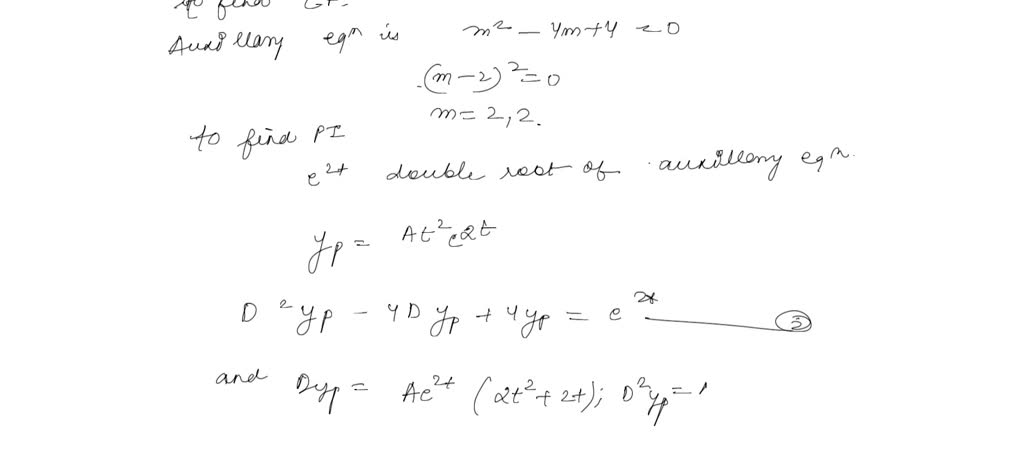 to find CF.
Auxillary eqn is m² - 4m+4 = 0
(m-2)² = 0
m = 2,2.
to find PI
e^2t double root of auxillary eqn.
yp = At²e^2t
D²yp - 4Dyp + 4yp = e^2t ③
and Dyp = Ae^2t (2t²+2t); D²yp =